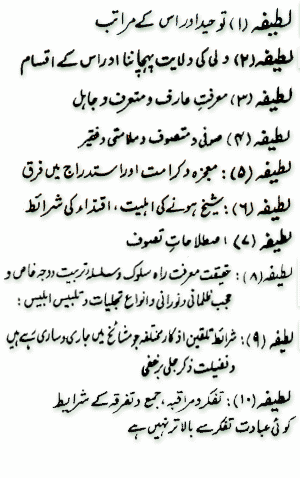 لطیفہ (۱) توحید اور اس کے مراتب
لطیفہ (۲) ولی کی ولایت پہچاننا اور اس کے اقسام
لطیفہ (۳) معرفتِ عارف و متعرف و جاہل
لطیفہ (۴) صوفی و متصوف و ملامتی و فقیر
لطیفہ (۵): معجزہ و کرامت اور استدراج میں فرق
لطیفہ (۶): شیخ ہونے کی اہلیت، اقتداء کی شرائط
لطیفہ (۷) اصطلاحاتِ تصوف
لطیفہ (۸): حقیقت معرفت راہ سلوک و سلسلہ تربیت و وجہ خاص و
حجب ظلمانی و نورانی و انواع تجلیات و تلبیس ابلیس:
لطیفہ (۹): شرائط تلقین اذکار مختلفہ جو مشائخ میں جاری و ساری رہے ہیں
و فضیلت ذکر جلی بر خفی
لطیفہ (۱۰): تفکر و مراقبہ، جمع و تفرقہ کے شرایط
کوئی عبادت تفکر سے بالاتر نہیں ہے